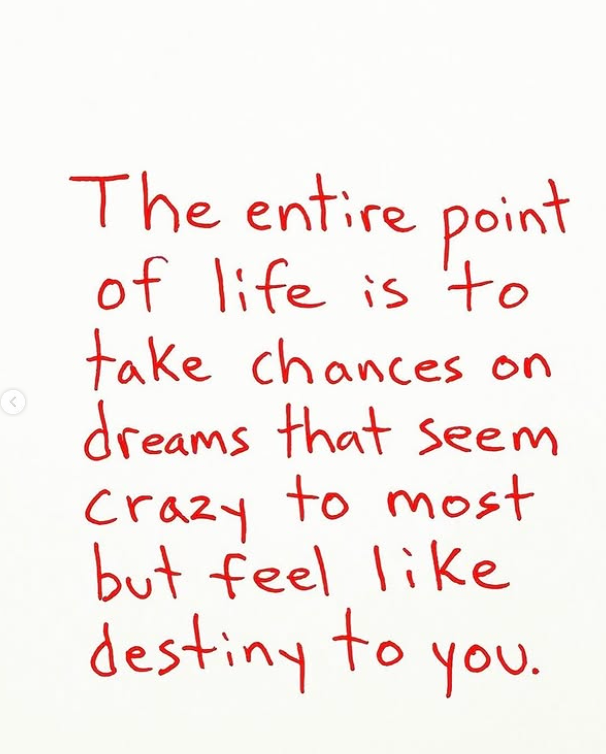 The entire point
of life is to
take chances on
dreams that seem
crazy to most
but feel like
destiny to you.